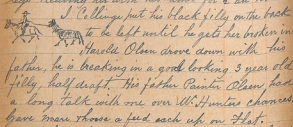 J. Collings put his black filly on the back
to be left until he gets her broken in
Harold Olsen drove down with his
father, he is breaking in a good looking 3 year old
filly, half draft. His father Painter Olsen, had
a long talk with me over Mr Hunters chances.
Gave mare & horse a feed each up on Flat.